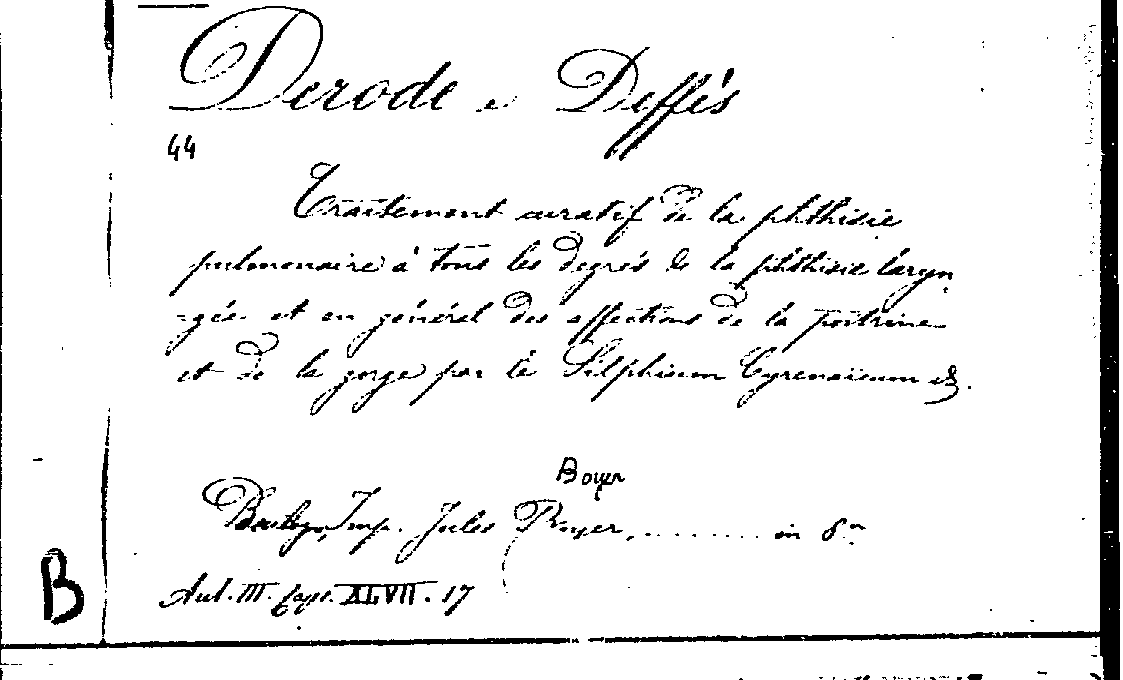 Derode e Deffés
44
Traitement curatif de la phthisie
pulmonaire à tous les degrés de la phthisie laryn
-gée et en général des affections de la poitrine
et de la gorge par le Silphium Cyrenaicum &.
Boyer
Imp. Jules Royer, ......... in 8º
B
Aul. III. Caps. XLVII. 17